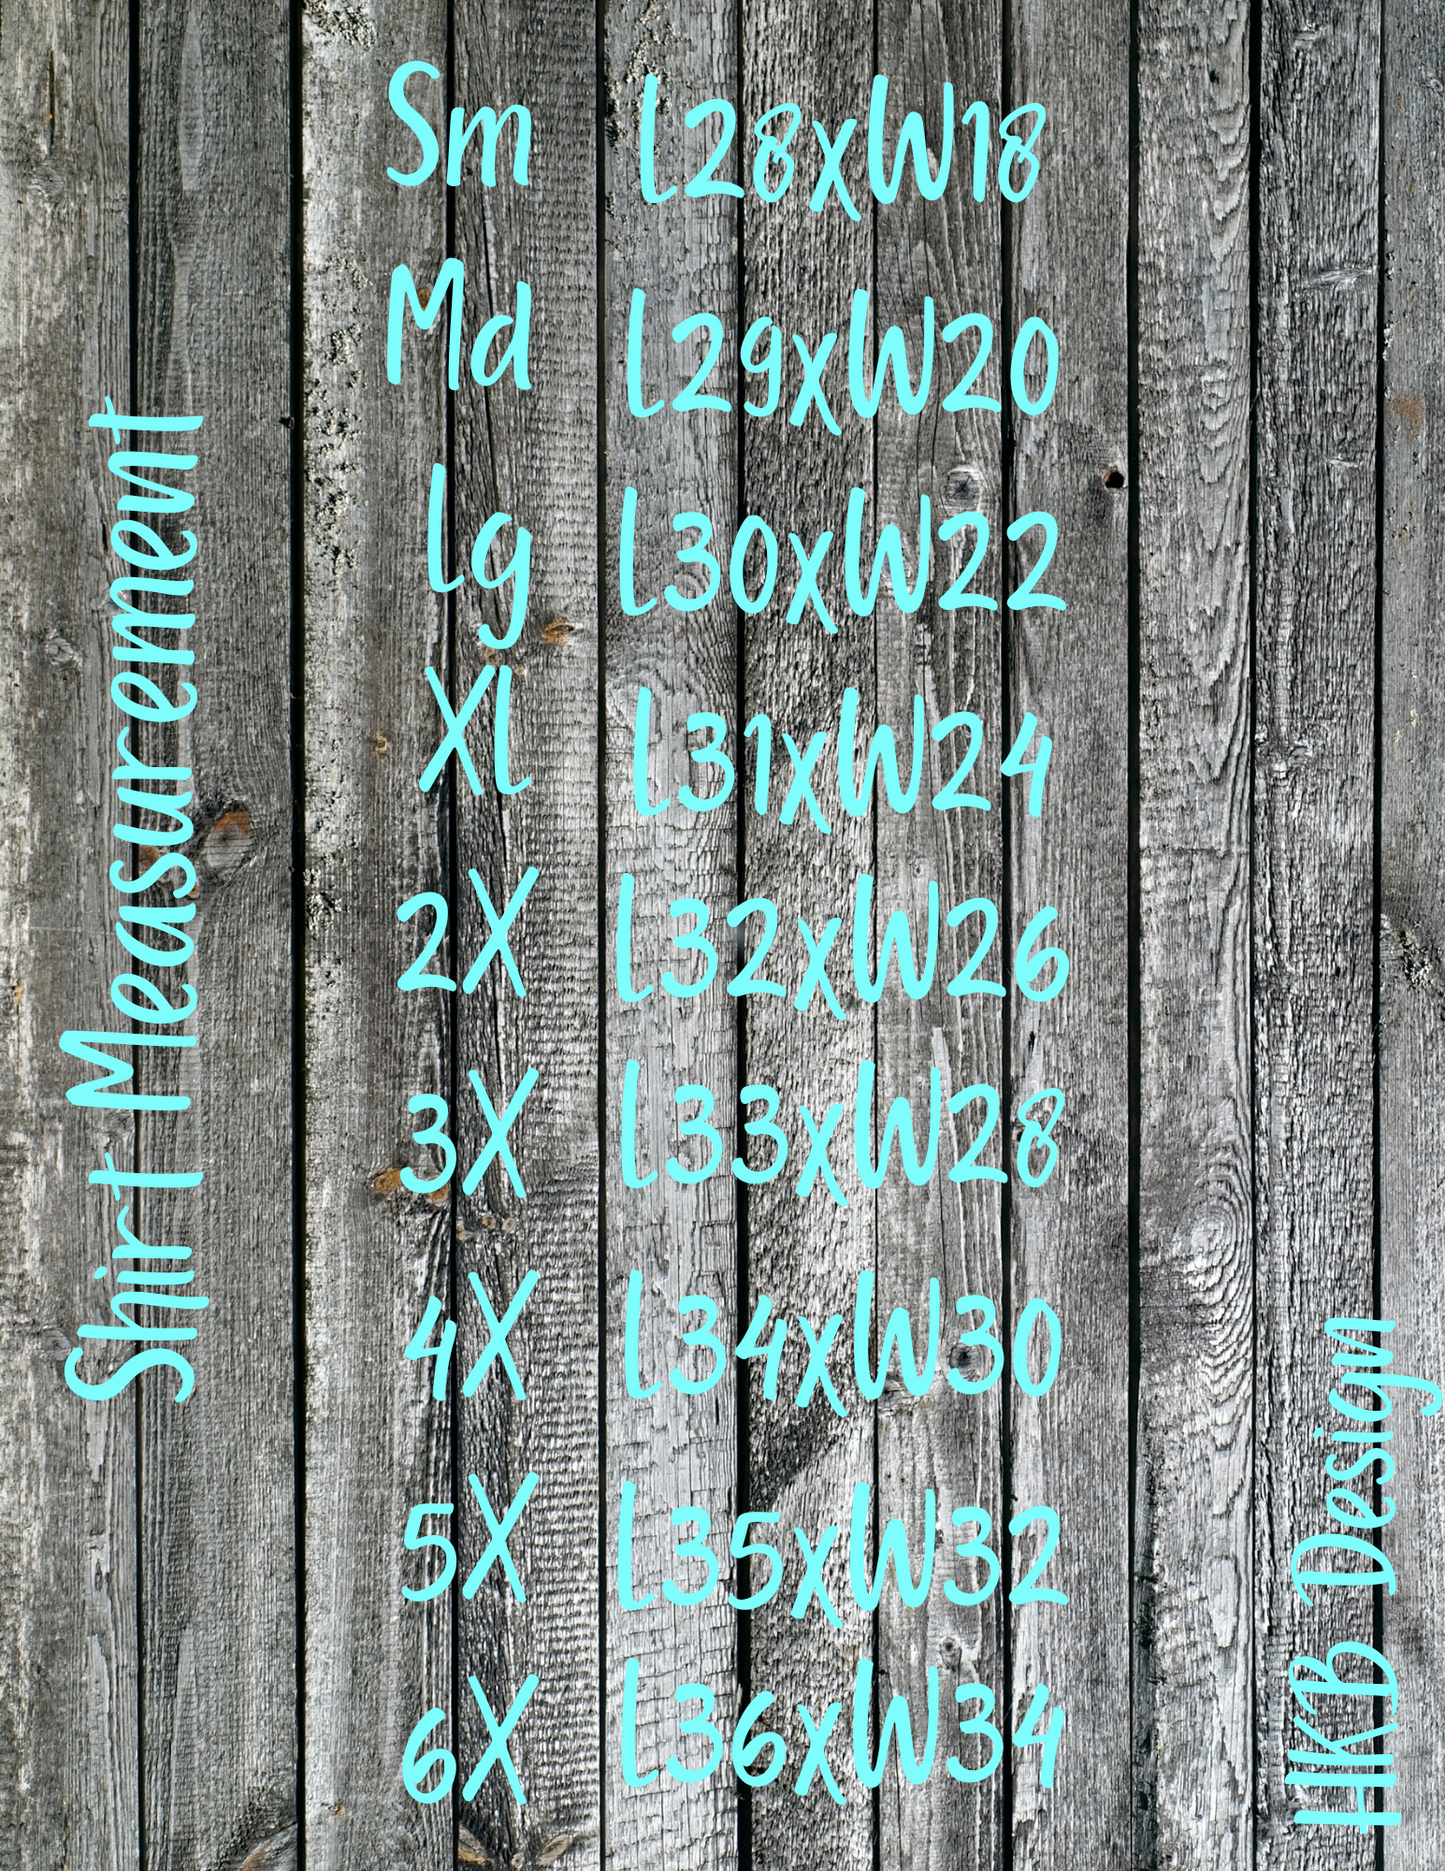 Shirt Measurement
Sm L28xW18
Md L29xW20
Lg L30xW22
XL L31xW24
2X L32xW26
3X L33xW28
4X L34xW30
5X L35xW32
6X L36xW34
HKB Design